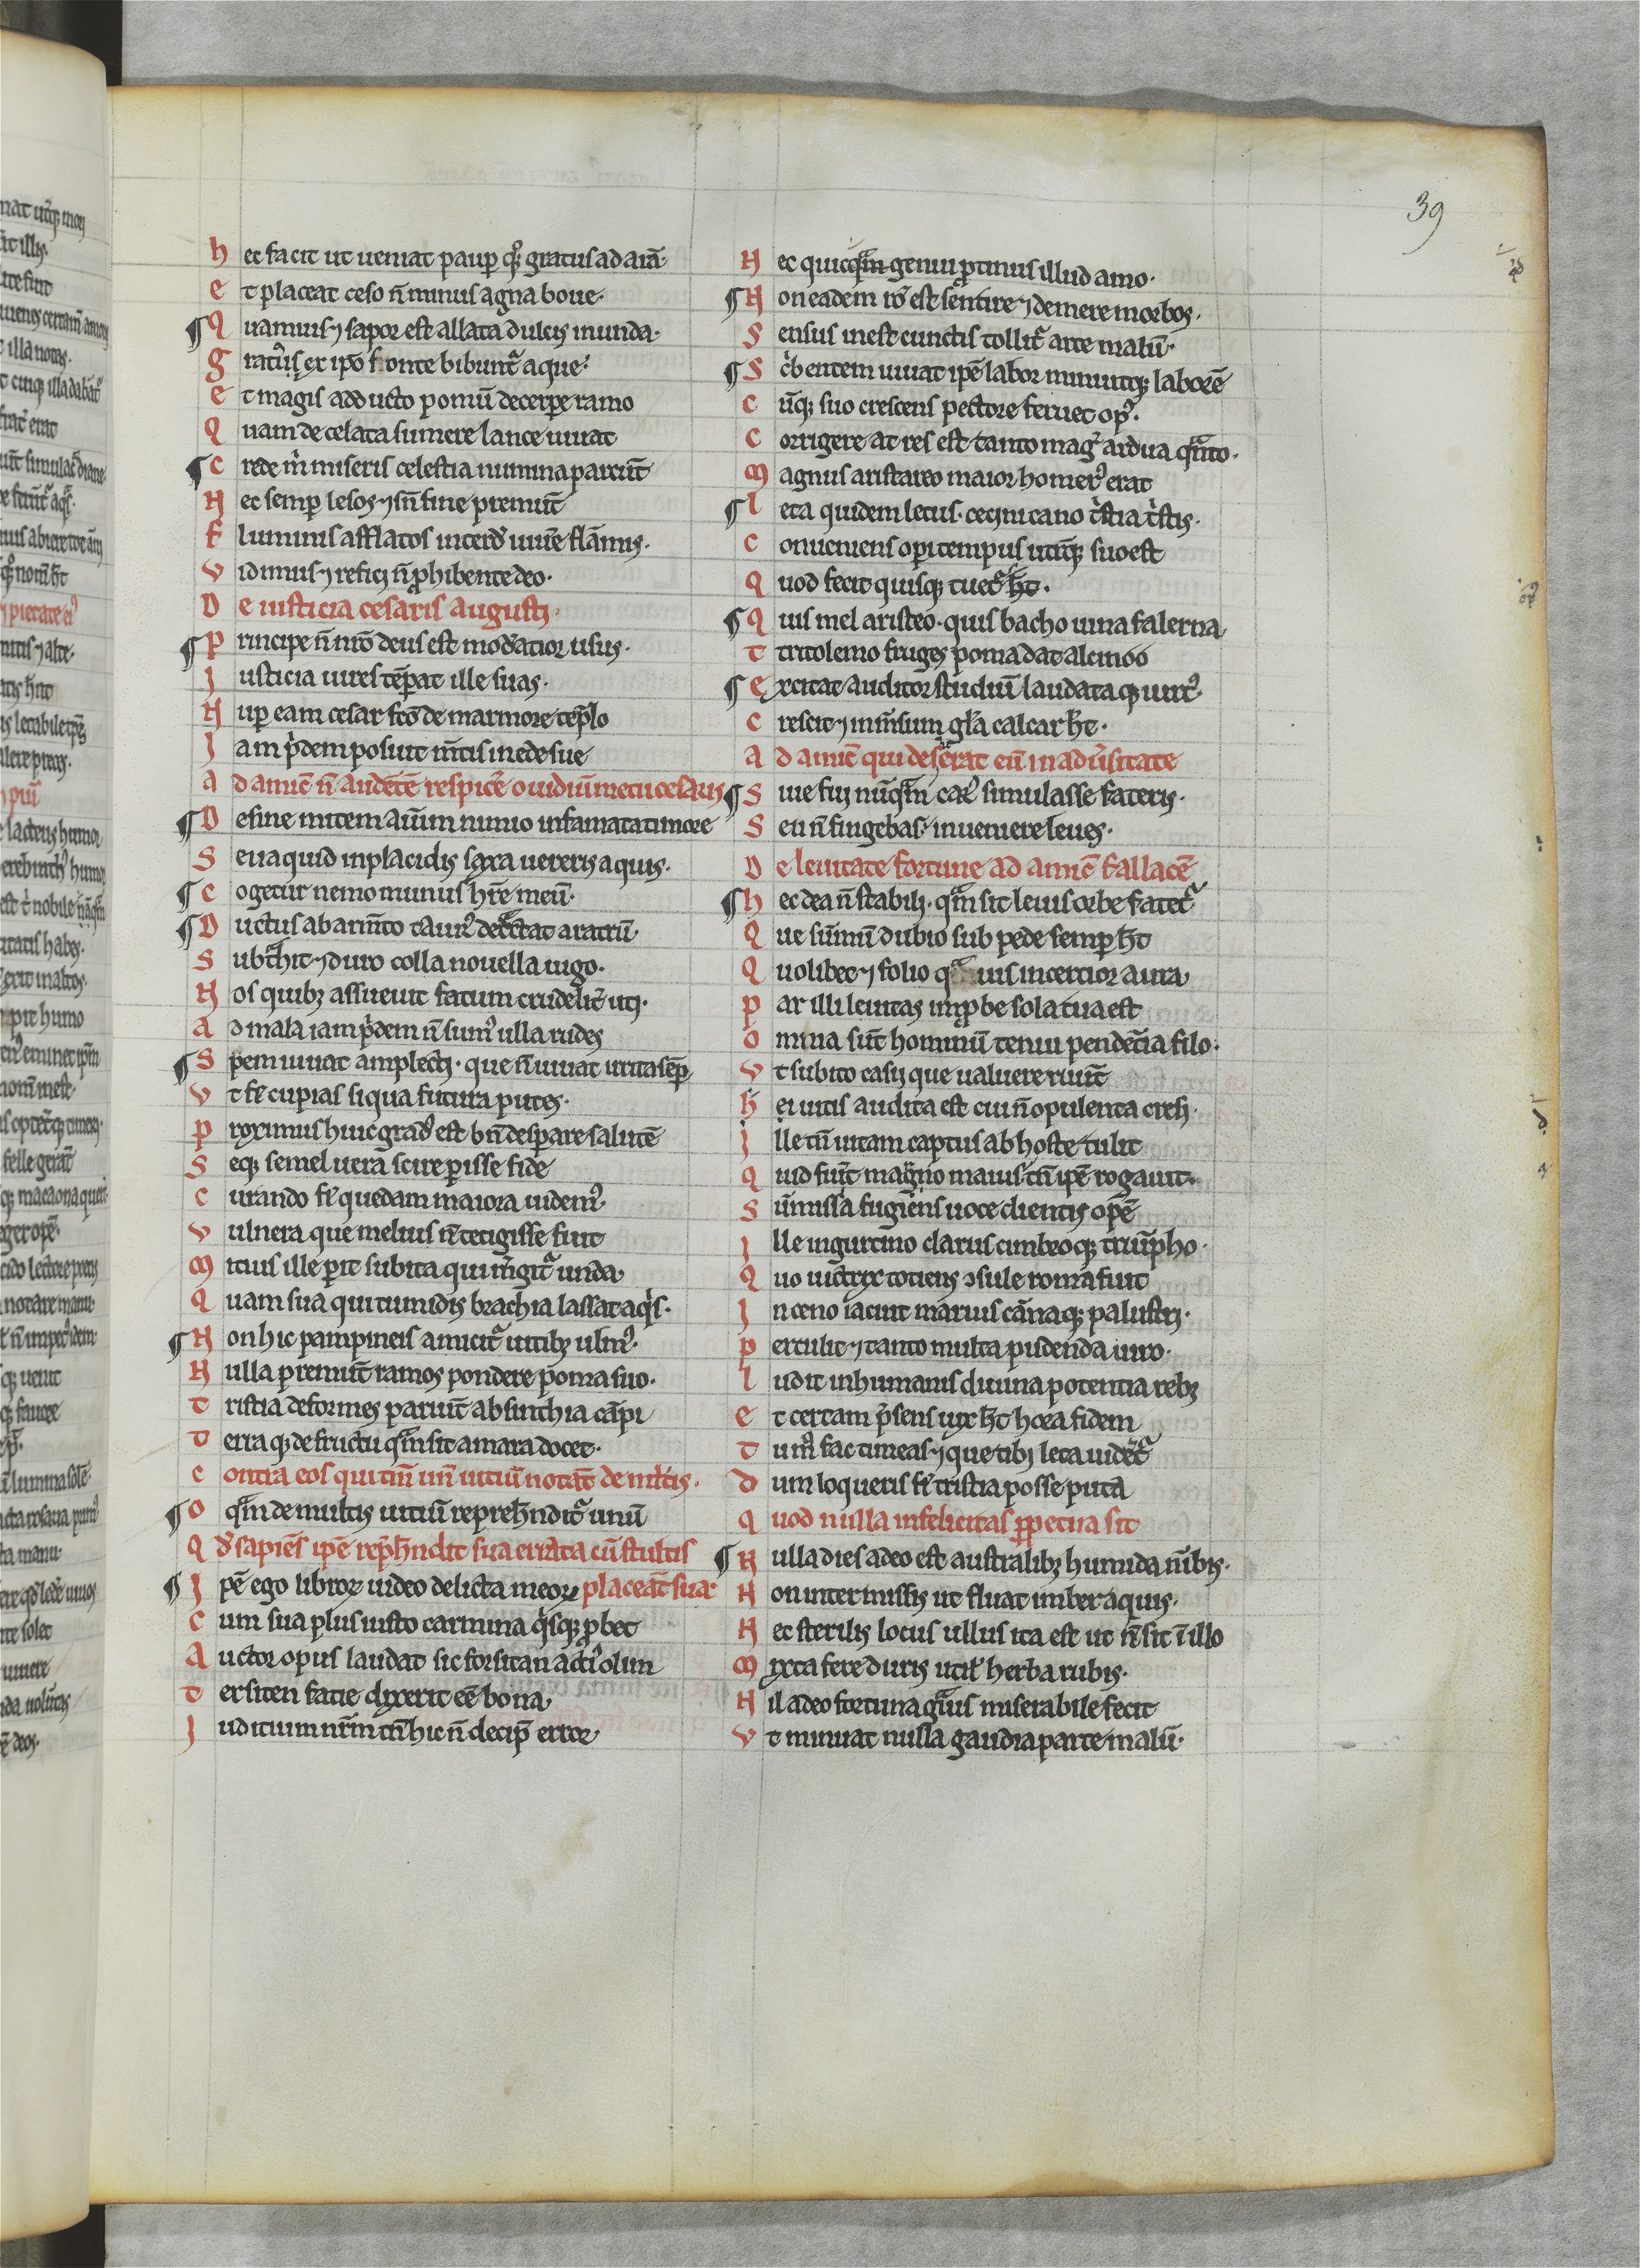 39
hec facit ut ueniat paup̱ qꝫ gratus ad arā
et placeat ceso n̄ minus agna boue
¶ Quamuis ⁊ sapor est allata dulcis in unda
gratius ex ip̄o fonte bibunt᷑ aque
et magis adducto pomū decerpe̱ ramo
Quam de celata sumere lance iuuat
¶ Crede m̄ miseris celestia numina parcūt
Nec semp̱ lesos ⁊ sn̄ fine premūt
fluminis afflatos interdū uiuē e flāmis
vidimus ⁊ refici n̄ ꝓhibente deo
De iusticia cesaris augusti
¶ principe n̄ nr̄o deus est mod̄atior usus
Justicia uires tēperat ille suas
Nup̱ eam cesar fc̄o de marmore tēplo
Jam p̄dem posuit m̄tis in ede sue
ad amic̄ n̄ audētē respicē ouidiū metu cesaris
¶ Desine mitem aīum nimio infamata timore
Seua quid in placidis saxa uereris aquis
¶ Cogetur nemo munus hr̄e meū
¶ Ductus ab arm̄to taur᷒ detrectat aratrū
Subt̄hit ⁊ duro colla nouella iugo
Nos quibꝫ assueuit fatum crudelit̄ uti
ad mala iam p̄dem n̄ sum᷒ ulla rudes
¶ Spem iuuat amplecti que n̄ iuuat irrita semp̱
vt fi̇ cupias siqua futura putes
proximus huic grad᷒ est bn̄ desperare salutē
Seqꝫ semel uera scire perisse fide
Curando fi̇ quedam maiora uidem᷒
vulnera que melius n̄ tetigisse fuit
mitius ille perit subita qui m̄git᷑ unda
Quam sua qui tumidis brachia lassat aq̇s
¶ Non hic pampineis amicit᷑ uitibꝫ ulm᷒
Nulla premūt ramos pondere poma suo
tristia deformes pariūt absinthia cāpi
terraqꝫ de fructu qm̄ sit amara docet
contra eos qui tm̄ un̄ uitiū notāt de ml̄tis
¶ o qm̄ de multis uitiū reprehēndit᷑ unū
Qd̄ sapiēs ip̄e rep̄hēndit sua errata cū stultis
¶ Jpē ego libroꝝ uideo delicta meoꝝ placeāt sua
Cum sua plus iusto carmina q̇sqꝫ ꝓbet
Auctor opus laudat sic forsitan act̄i᷒ olim
tersiten facie dixerit eē bona
Judicium nr̄m tn̄ hic n̄ decip̄ error
Nec quicqm̄ genui ꝓtinus illud amo
¶ Non eadem rō est sentire ⁊ demere morbos
Sensus inest cunctis tollit᷑ arte malū
¶ Sc̀bentem iuuat ip̄e labor minuitqꝫ laborē
cūqꝫ suo crescens pectore feruet op᷒
corrigere at res est tanto mag᷒ ardua qnͣto
magnus aristareo maior homer᷒ erat
¶ leta quidem letus cecini cano t̀stia t̀stis
conueniens operi tempus utūqꝫ suo est
Quod fecit quisqꝫ tuet᷑ h̄t
¶ Quis mel aristeo quis bacho uina falerna
tritolemo fruges poma dat alcinoo
¶ excitat auditor studiū laudataqꝫ uirt᷒
crescit ⁊ inm̄sum gl̄a calcar h̄t
ad amic̄ qui deserat eū in adūsitate
¶ Siue fui nūqm̄ car᷒ simulasse fateris
Seu n̄ fingebas inueniere leues
De leuitate fortune ad amic̄ fallacē
¶ hec dea n̄ stabili qm̄ sit leuis orbe fatet᷑
Que sūmū dubio sub pede semp̱ h̄t
Quolibet ⁊ folio quis incertior aura
par illi leuitas inꝓbe sola tua est
omnia sūt hominū tenui pendētia filo
vt subito casu que ualuere ruūt
hei uitis audita est cui n̄ opulentia cresi
Jlle tn̄ uitam captus ab hoste tulit
quid fuit magno maius tn̄ ip̄e rogauit
Sūmissa fugiens uoce clientis opē
Jlle iugurtino clarus cimbreoqꝫ triūpho
Quo uictrix totiens ↄsule roma fuit
Jn ceno iacuit marius cānaqꝫ palustri
pertulit ⁊ tanto multa pudenda uiro
ludit in humanis diuina potentia rebꝫ
et certam p̄sens uix h̄t hora fidem
tum᷒ fac timeas ⁊ que tibi leta uidēt᷑
dum loqueris fi̇ tristia posse puta
quod nulla infelicitas ꝑpetua sit
¶ Nulla dies adeo est australibꝫ humida nībis
Non intermissis ut fluat imber aquis
Nec sterilis locus ullus ita est ut n̄ sit ī illo
mixta fere duris util̄ herba rubis
Nil adeo fortuna gͣuis miserabile fecit
vt minuat nulla gaudia parte malū